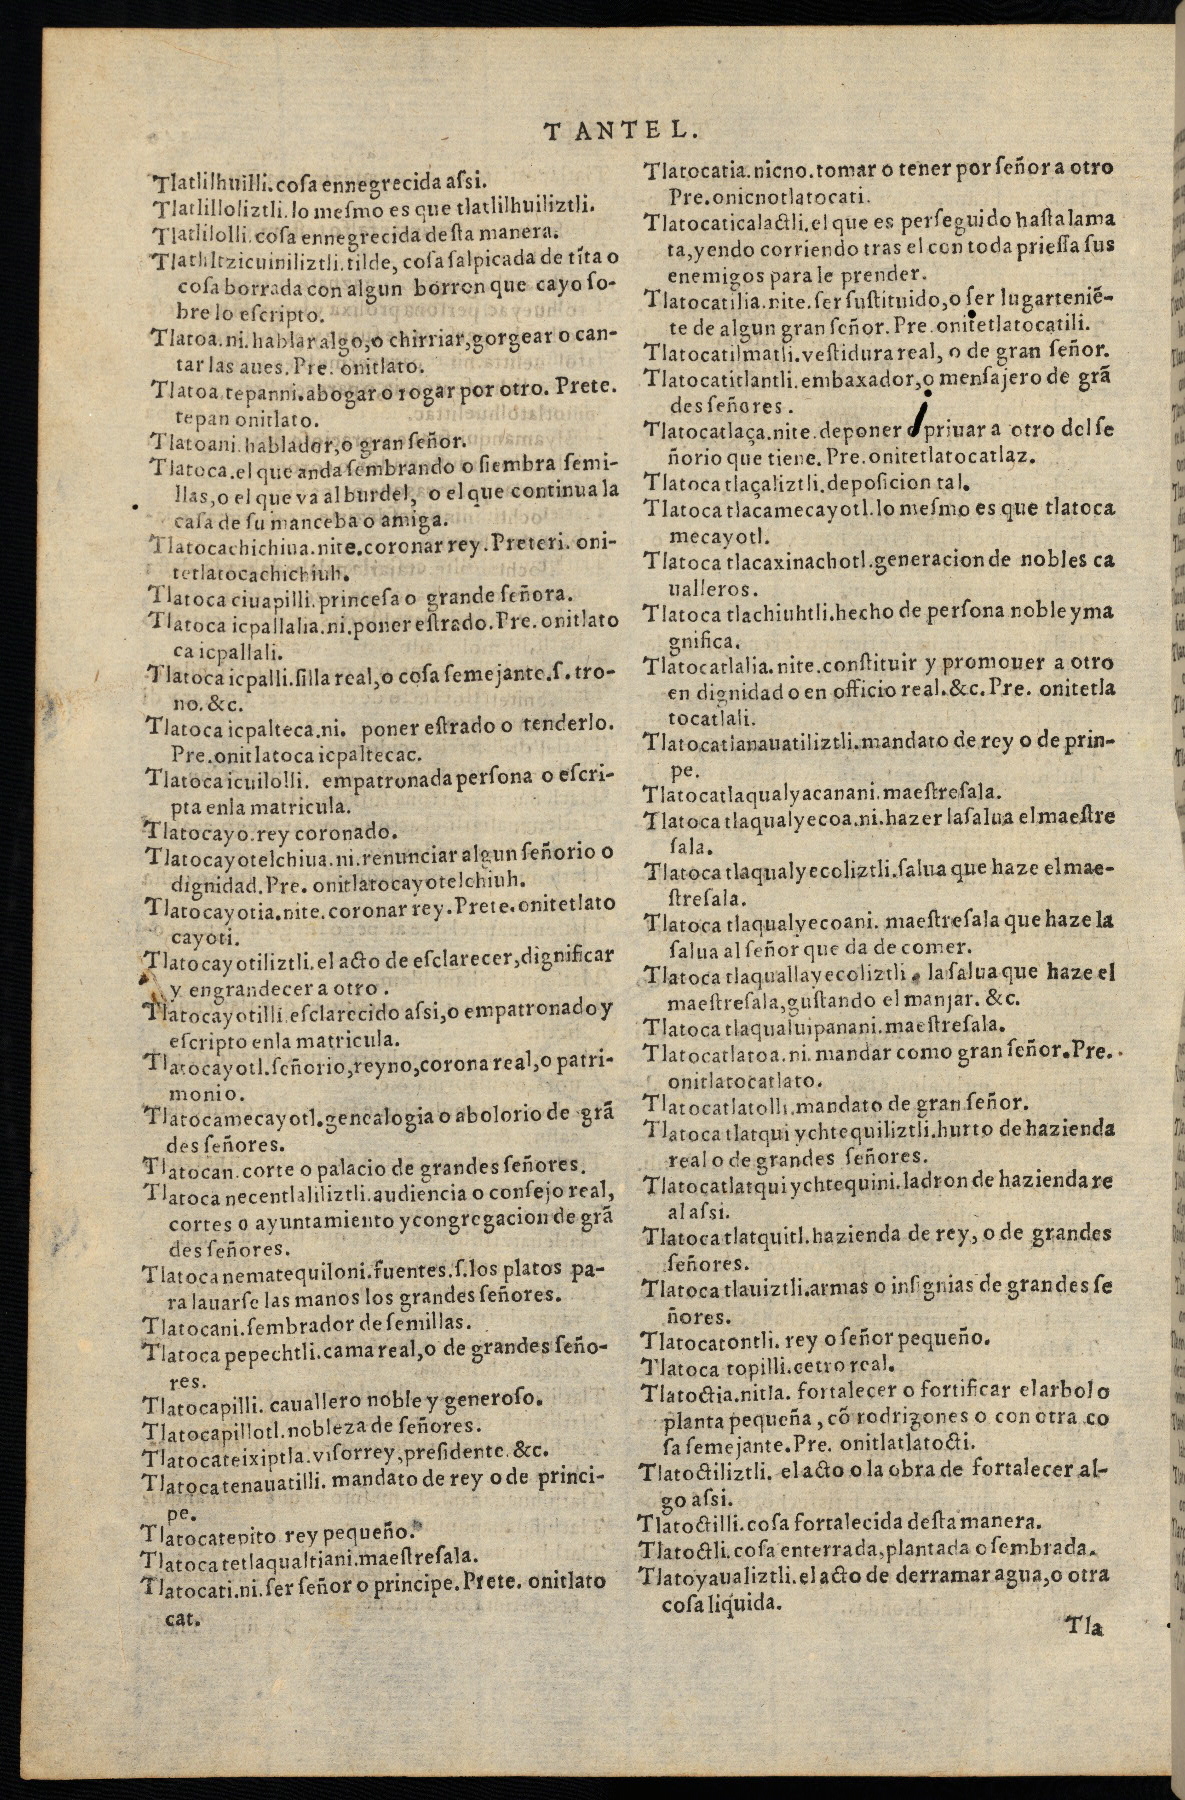 T ANTEL.
Tlatlilhuilli.coſa ennegrecida aſsi.
Tlatlilloliztli.lo meſmo es que tlatlilhuiliztli.
Tlatlilolli.coſa ennegrecida deſta manera.
Tlatliltzicuiniliztli.tilde, coſa ſalpicada de tĩta o
coſa borrada con algun borron que cayo ſo-
bre lo eſcripto.
Tlatoa.ni.hablar algo,o chirriar,gorgear o can-
tar las aues.Pre. onitlato.
Tlatoa.tepanni.abogar o rogar por otro. Prete.
tepan onitlato.
Tlatoani.hablador,o gran ſeñor.
Tlatoca.el que anda ſembrando o ſiembra ſemi-
llas,o el que va al burdel, o el que continua la
caſa de ſu manceba o amiga.
Tlatocachichiua.nite.coronar rey.Preteri. oni-
tetlatocachichiuh.
Tlatoca ciuapilli.princeſa o grande ſeñora.
Tlatoca icpallalia.ni.poner eſtrado.Pre.onitlato
ca icpallali.
Tlatoca icpalli.ſilla real,o coſa ſemejante.ſ.tro-
no.&c.
Tlatoca icpalteca.ni. poner eſtrado o tenderlo.
Pre.onitlatoca icpaltecac.
Tlatoca icuilolli. empatronada perſona o eſcri-
pta enla matricula.
Tlatocayo.rey coronado.
Tlatocayotelchiua.ni.renunciar algun ſeñorio o
dignidad.Pre. onitlatocayotelchiuh.
Tlatocayotia.nite.coronar rey.Prete.onitetlato
cayoti.
Tlatocayotiliztli.el acto de eſclarecer,dignificar
y engrandecer a otro.
Tlatocayotilli.eſclarecido aſsi,o empatronado y
eſcripto enla matricula.
Tlatocayotl.ſeñorio,reyno,corona real,o patri-
monio.
Tlatocamecayotl.genealogia o abolorio de grã
des ſeñores.
Tlatocan.corte o palacio de grandes ſeñores.
Tlatoca necentlaliliztli.audiencia o conſejo real,
cortes o ayuntamiento y congregacion de grã
des ſeñores.
Tlatoca nematequiloni.fuentes.ſ.los platos pa-
ra lauarſe las manos los grandes ſeñores.
Tlatocani.ſembrador de ſemillas.
Tlatoca pepechtli.cama real,o de grandes ſeño-
res.
Tlatocapilli. cauallero noble y generoſo.
Tlatocapillotl.nobleza de ſeñores.
Tlatocateixiptla.viſorrey,preſidente.&c.
Tlatocatenauatilli. mandato de rey o de princi-
pe.
Tlatocatepito rey pequeño.
Tlatoca tetlaqualtiani.maeſtreſala.
Tlatocati.ni.ſer ſeñor o principe.Prete. onitlato
cat.
Tlatocatia.nicno.tomar o tener por ſeñor a otro
Pre.onicnotlatocati.
Tlatocaticalactli.el que es perſeguido haſta la ma
ta,yendo corriendo tras el con toda prieſſa ſus
enemigos para le prender.
Tlatocatilia.nite.ſer ſuſtituido,o ſer lugarteniẽ-
te de algun gran ſeñor.Pre.onitetlatocatili.
Tlatocatilmatli.veſtidura real, o de gran ſeñor.
Tlatocatitlantli.embaxador,o menſajero de grã
des ſeñores.
Tlatocatlaça.nite.deponer o priuar a otro del ſe
ñorio que tiene.Pre.onitetlatocatlaz.
Tlatoca tlaçaliztli.depoſicion tal.
Tlatoca tlacamecayotl.lo meſmo es que tlatoca
mecayotl.
Tlatoca tlacaxinachotl.generacion de nobles ca
ualleros.
Tlatoca tlachiuhtli.hecho de perſona noble y ma
gnifica.
Tlatocatlalia.nite.conſtituir y promouer a otro
en dignidad o en officio real.&c.Pre. onitetla
tocatlali.
Tlatocatlanauatiliztli.mandato de rey o de prin-
pe.
Tlatocatlaqualyacanani.maeſtreſala.
Tlatoca tlaqualyecoa.ni.hazer la ſalua el maeſtre
ſala.
Tlatoca tlaqualyecoliztli.ſalua que haze el mae-
ſtreſala.
Tlatoca tlaqualyecoani. maeſtreſala que haze la
ſalua al ſeñor que da de comer.
Tlatoca tlaquallayecoliztli. la ſalua que haze el
maeſtreſala,guſtando el manjar. &c.
Tlatoca tlaqualuipanani.maeſtreſala.
Tlatocatlatoa.ni.mandar como gran ſeñor.Pre.
onitlatocatlato.
Tlatocatlatolli.mandato de gran ſeñor.
Tlatoca tlatqui ychtequiliztli.hurto de hazienda
real o de grandes ſeñores.
Tlatocatlatqui ychtequini.ladron de hazienda re
al aſsi.
Tlatoca tlatquitl.hazienda de rey, o de grandes
ſeñores.
Tlatoca tlauiztli.armas o inſignias de grandes ſe
ñores.
Tlatocatontli. rey o ſeñor pequeño.
Tlatoca topilli.cetro real.
Tlatoctia.nitla. fortalecer o fortificar el arbol o
planta pequeña, cõ rodrigones o con otra co
ſa ſemejante.Pre. onitlatlatocti.
Tlatoctiliztli. el acto o la obra de fortalecer al-
go aſsi.
Tlatoctilli.coſa fortalecida deſta manera.
Tlatoctli.coſa enterrada,plantada o ſembrada.
Tlatoyaualiztli.el acto de derramar agua,o otra
coſa liquida.
Tla